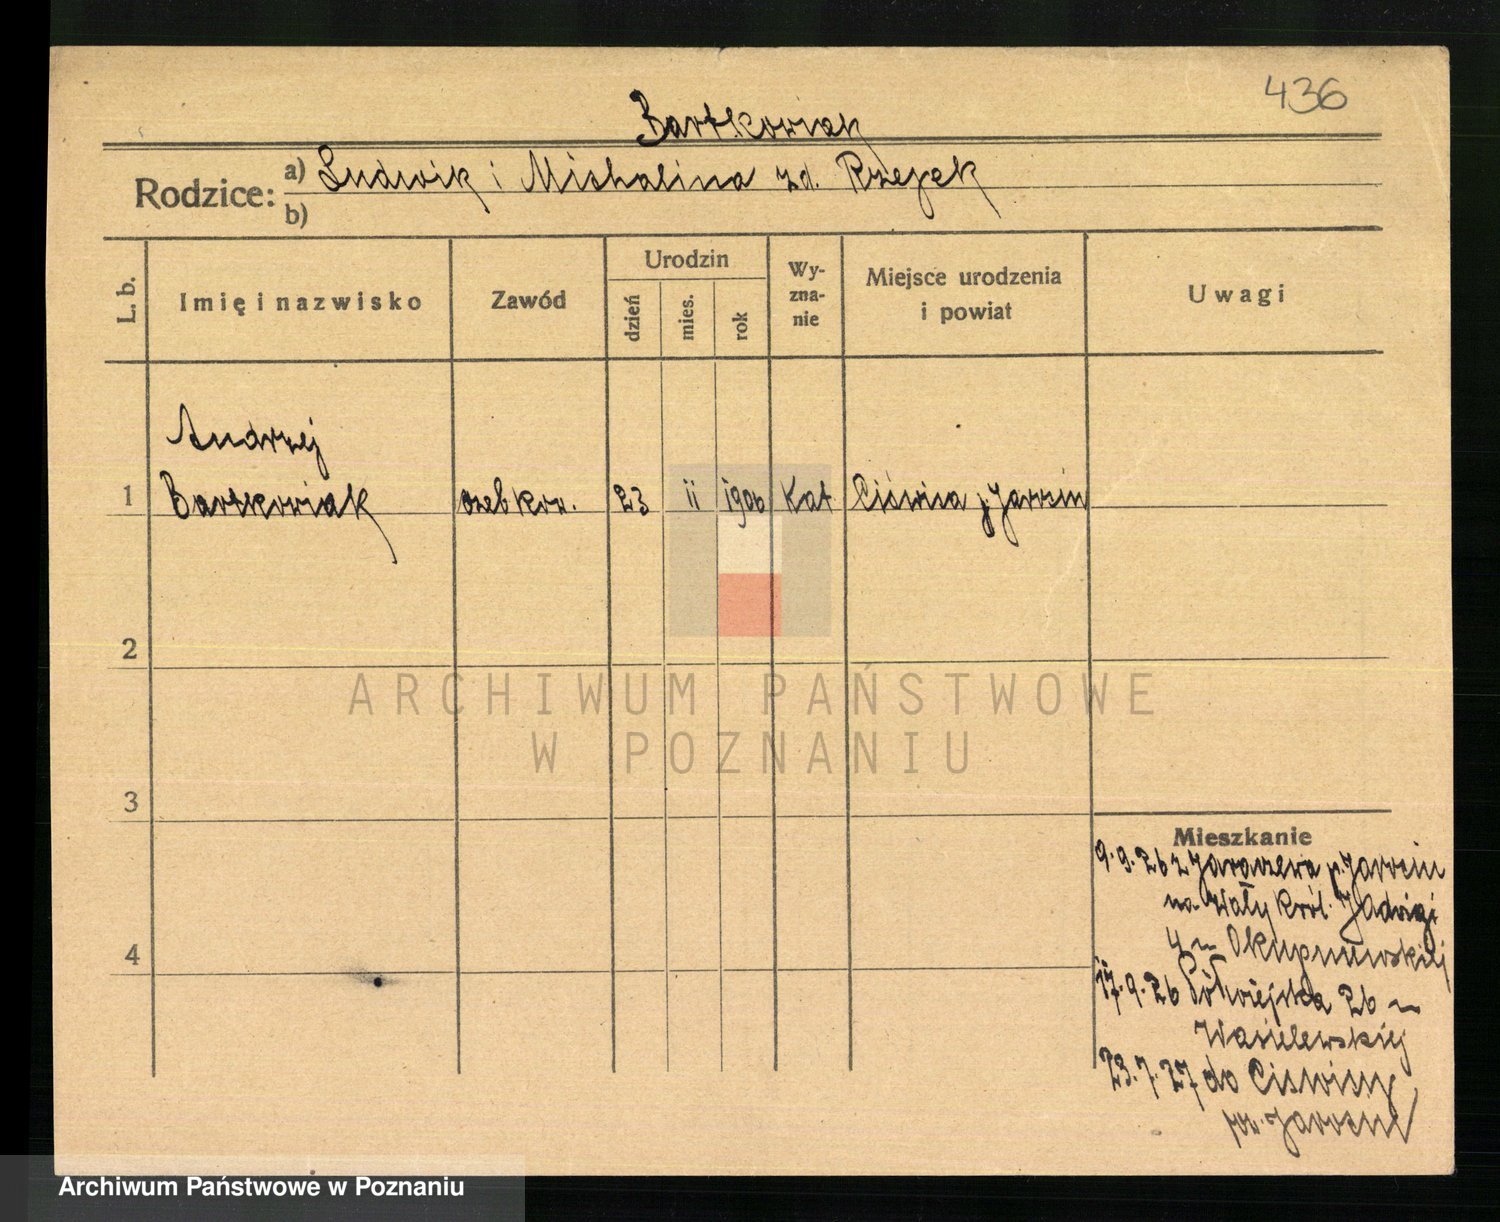 436
Bartkowiak
Rodzice: a) Ludwik i Michalina zd. Rzezek
b)
L. b.
Imię i nazwisko
Zawód
Urodzin
dzień
mies.
rok
Wy-
zna-
nie
Miejsce urodzenia
i powiat
Uwagi
Andrzej
1 Bartkowiak czel. krw. 23 ii 1906 Kat. Ciświca p. Jarocin
2
ARCHIWUM PAŃSTWOWE
W POZNANIU
3
Mieszkanie
9.9.26 z Jaraczewa p. Jarocin
na Wały Król. Jadwigi
4
17.9.26 Półwiejska 26
Wasielewskiej
23.7.27 do Ciświcy
pow. Jarocin
Archiwum Państwowe w Poznaniu